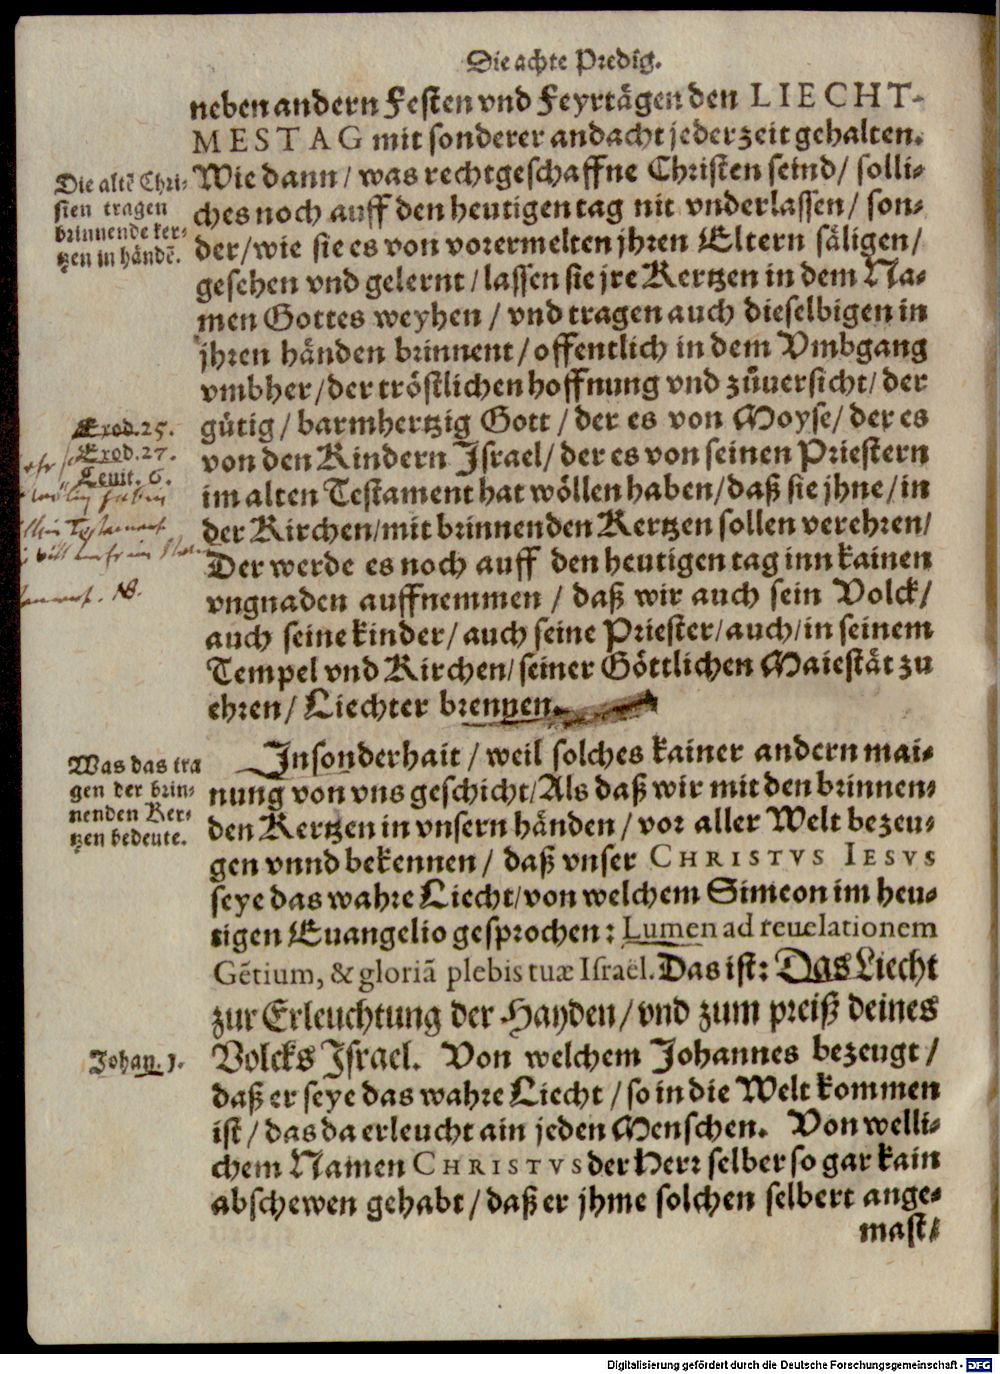 Die achte Predig.
neben andern Festen vnd Feyrtägen den LIECHT-
MESTAG mit sonderer andacht jederzeit gehalten.
Die altẽ Chri-
sten tragen
brinnende ker-
tzen in händẽ.
Wie dann / was rechtgeschaffne Christen seind / solli-
ches noch auff den heutigen tag nit vnderlassen / son-
der / wie sie es von vorermelten jhren Eltern säligen /
gesehen vnd gelernt / lassen sie jre Kertzen in dem Na-
men Gottes weyhen / vnd tragen auch dieselbigen in
jhren händen brinnent / offentlich in dem Vmbgang
vmbher / der tröstlichen hoffnung vnd zůuersicht / der
Exod. 25.
Exod. 27.
Leuit. 6.
gütig / barmhertzig Gott / der es von Moyse / der es
von den Kindern Israel / der es von seinen Priestern
im alten Testament hat wöllen haben / daß sie jhne / in
der Kirchen / mit brinnenden Kertzen sollen verehren /
Der werde es noch auff den heutigen tag inn kainen
vngnaden auffnemmen / daß wir auch sein Volck /
auch seine kinder / auch seine Priester / auch / in seinem
Tempel vnd Kirchen / seiner Göttlichen Maiestät zu
ehren / Liechter brennen.
Was das tra
gen der brin-
nenden Ker-
tzen bedeute.
Insonderhait / weil solches kainer andern mai-
nung von vns geschicht / Als daß wir mit den brinnen-
den Kertzen in vnsern händen / vor aller Welt bezeu-
gen vnnd bekennen / daß vnser CHRISTVS IESVS
seye das wahre Liecht / von welchem Simeon im heu-
tigen Euangelio gesprochen: Lumen ad reuelationem
Gẽtium, & gloriã plebis tuæ Israël. Das ist: Das Liecht
zur Erleuchtung der Hayden / vnd zum preiß deines
Johan. 1.
Volcks Israel. Von welchem Johannes bezeugt /
daß er seye das wahre Liecht / so in die Welt kommen
ist / das da erleucht ain jeden Menschen. Von welli-
chem Namen CHRISTVS der Herr selber so gar kain
abschewen gehabt / daß er jhme solchen selbert ange-
mast /
Digitalisierung gefördert durch die Deutsche Forschungsgemeinschaft - DFG